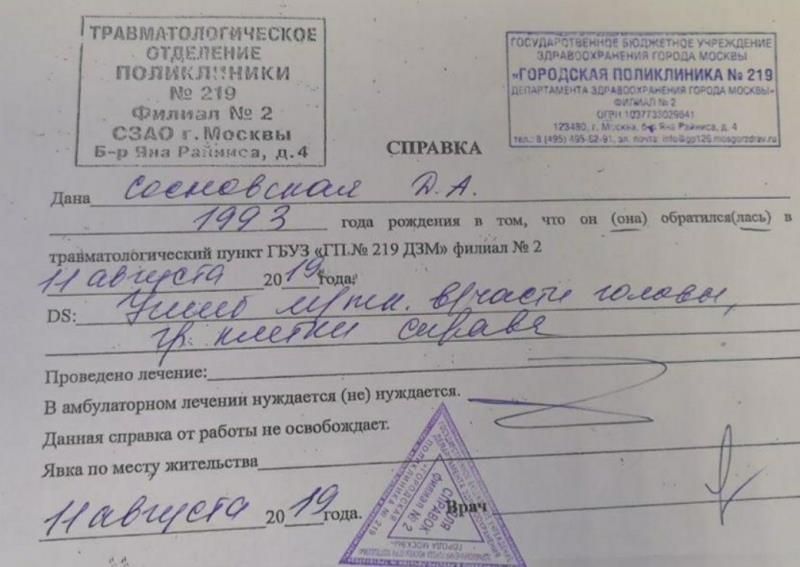 ТРАВМАТОЛОГИЧЕСКОЕ
ОТДЕЛЕНИЕ
ПОЛИКЛИНИКИ
№ 219
Филиал № 2
СЗАО г. Москвы
Б-р Яна Райниса, д. 4
ГОСУДАРСТВЕННОЕ БЮДЖЕТНОЕ УЧРЕЖДЕНИЕ
ЗДРАВООХРАНЕНИЯ ГОРОДА МОСКВЫ
«ГОРОДСКАЯ ПОЛИКЛИНИКА № 219
ДЕПАРТАМЕНТА ЗДРАВООХРАНЕНИЯ ГОРОДА МОСКВЫ»
ФИЛИАЛ № 2
ОГРН 1037733029641
123480, г. Москва, б-р Яна Райниса, д. 4
тел.: 8 (495) 495-62-91, эл. почта: info@gp126.mosgorzdrav.ru
СПРАВКА
Дана Сосновская Д.А.
1993 года рождения в том, что он (она) обратился(лась) в
травматологический пункт ГБУЗ «ГП.№ 219 ДЗМ» филиал № 2
11 августа 2019 года.
DS: Ушиб мягк. в/части головы,
гр. клетки справа
Проведено лечение:
В амбулаторном лечении нуждается (не) нуждается.
Данная справка от работы не освобождает.
Явка по месту жительства
11 августа 2019 года.
Врач
ДЛЯ
СПРАВОК
филиал № 2